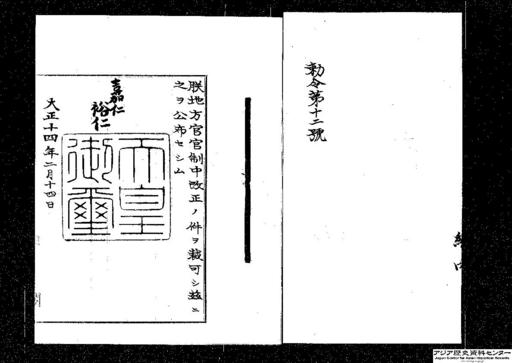 勅令第十二號
朕地方官官制中改正ノ件ヲ裁可シ茲ニ
之ヲ公布セシム
嘉仁
裕仁
天皇御璽
大正十四年二月十四日
アジア歴史資料センター
Japan Center for Asian Historical Records